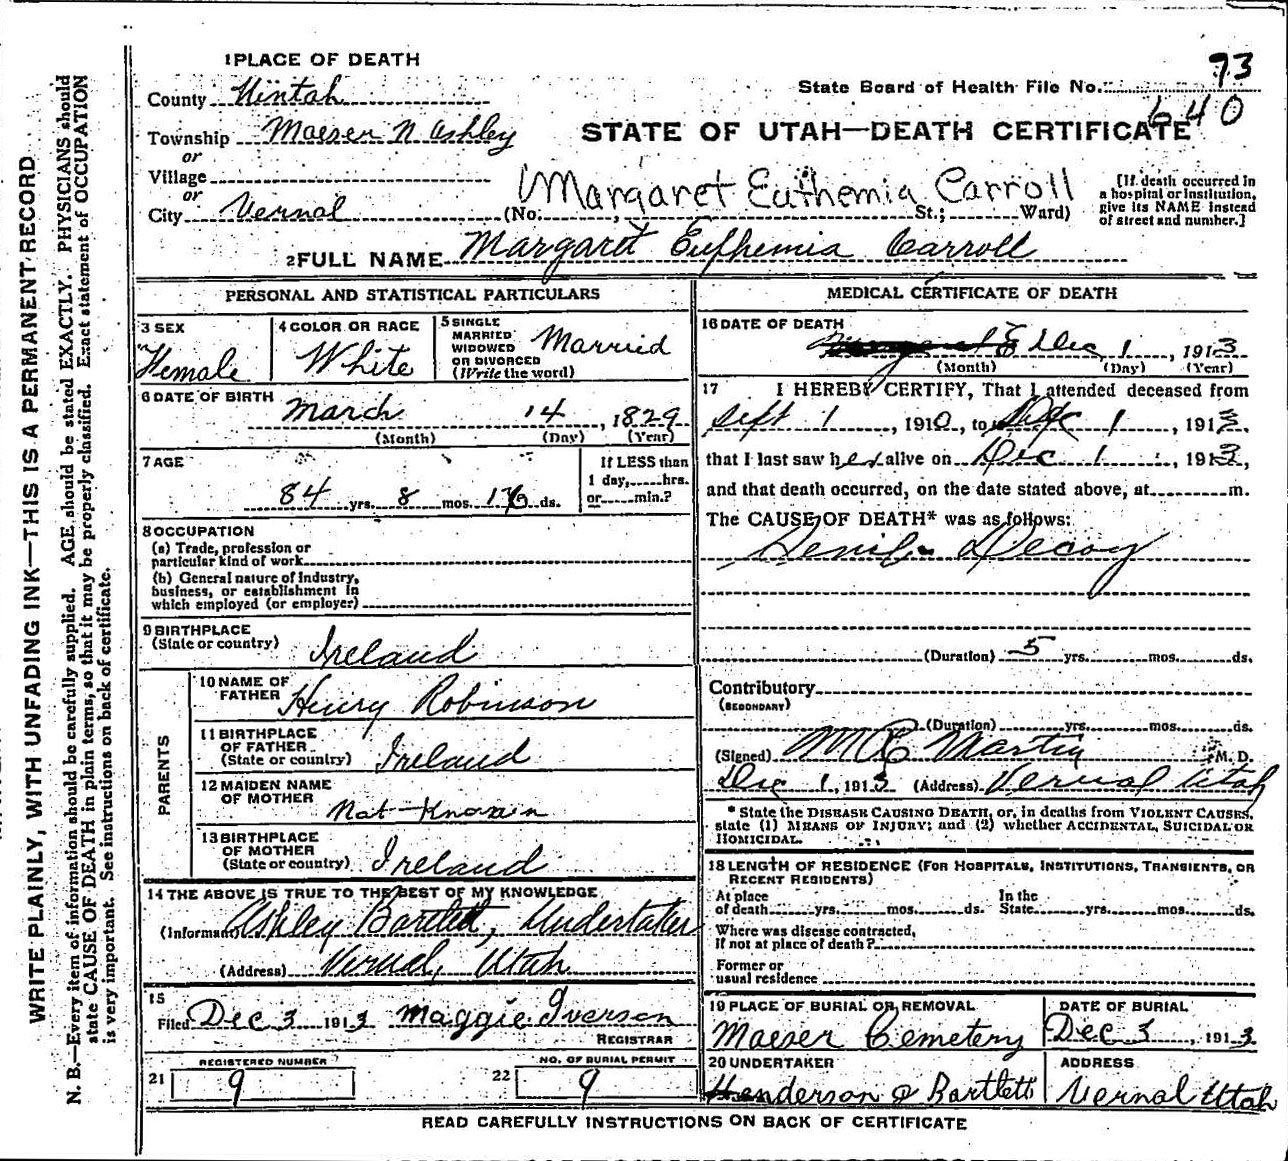 WRITE PLAINLY, WITH UNFADING INK—THIS IS A PERMANENT RECORD
N. B.—Every item of information should be carefully supplied. AGE should be stated EXACTLY. PHYSICIANS should
state CAUSE OF DEATH in plain terms, so that it may be properly classified. Exact statement of OCCUPATION
is very important. See instructions on back of certificate.
1 PLACE OF DEATH
County Uintah
Township Maeser N Ashley
or
Village
or
City Vernal
State Board of Health File No. 73
640
STATE OF UTAH—DEATH CERTIFICATE
Margaret Euthemia Carroll
(No. , St.; Ward)
[If death occurred in
a hospital or institution,
give its NAME instead
of street and number.]
2 FULL NAME Margaret Eufhemia Carroll
PERSONAL AND STATISTICAL PARTICULARS
3 SEX
Female
4 COLOR OR RACE
White
5 SINGLE
MARRIED
WIDOWED
OR DIVORCED
(Write the word)
Married
6 DATE OF BIRTH
March 14, 1829
(Month) (Day) (Year)
7 AGE
84 yrs. 8 mos. ds.
If LESS than
1 day, hrs.
or min.?
8 OCCUPATION
(a) Trade, profession or
particular kind of work
(b) General nature of industry,
business, or establishment in
which employed (or employer)
9 BIRTHPLACE
(State or country) Ireland
PARENTS
10 NAME OF
FATHER Henry Robinson
11 BIRTHPLACE
OF FATHER
(State or country) Ireland
12 MAIDEN NAME
OF MOTHER
Not Known
13 BIRTHPLACE
OF MOTHER
(State or country) Ireland
14 THE ABOVE IS TRUE TO THE BEST OF MY KNOWLEDGE
(Informant) Ashley Bartlett, Undertaker
(Address) Vernal, Utah
15
Filed Dec 3 1913 Maggie Iverson
REGISTRAR
REGISTERED NUMBER
21 9
NO. OF BURIAL PERMIT
22 9
MEDICAL CERTIFICATE OF DEATH
16 DATE OF DEATH
Dec 1, 1913
(Month) (Day) (Year)
17 I HEREBY CERTIFY, That I attended deceased from
Sept 1, 1910, to Dec 1, 1913.
that I last saw her alive on Dec 1, 1913,
and that death occurred, on the date stated above, at m.
The CAUSE OF DEATH* was as follows:
Senile Decay
(Duration) 5 yrs. mos. ds.
Contributory
(SECONDARY)
(Duration) yrs. mos. ds.
(Signed) Martin M. D.
Dec 1, 1913 (Address) Vernal Utah
* State the DISEASE CAUSING DEATH, or, in deaths from VIOLENT CAUSES,
state (1) MEANS OF INJURY; and (2) whether ACCIDENTAL, SUICIDAL OR
HOMICIDAL.
18 LENGTH OF RESIDENCE (FOR HOSPITALS, INSTITUTIONS, TRANSIENTS, OR
RECENT RESIDENTS)
At place
of death yrs. mos. ds.
In the
State yrs. mos. ds.
Where was disease contracted,
if not at place of death?
Former or
usual residence
19 PLACE OF BURIAL OR REMOVAL
Maeser Cemetery
DATE OF BURIAL
Dec 3, 1913
20 UNDERTAKER
Henderson & Bartlett
ADDRESS
Vernal Utah
READ CAREFULLY INSTRUCTIONS ON BACK OF CERTIFICATE